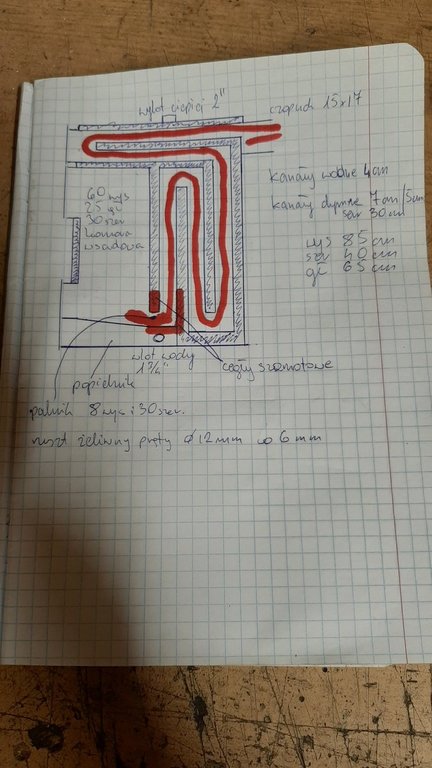 wylot cieplej 2"
czopuch 15x17
kanały wodne 4cm
kanały dymne 7cm/5cm
szer 30cm
wys 85cm
szer 40cm
gł 65cm
60 wys
25 gł
30 szer
komora
wsadowa
wlot wody
1 3/4"
cegły szamotowe
popielnik
palnik 8 wys i 30 szer.
ruszt żeliwny pręty ϕ 12mm co 6mm